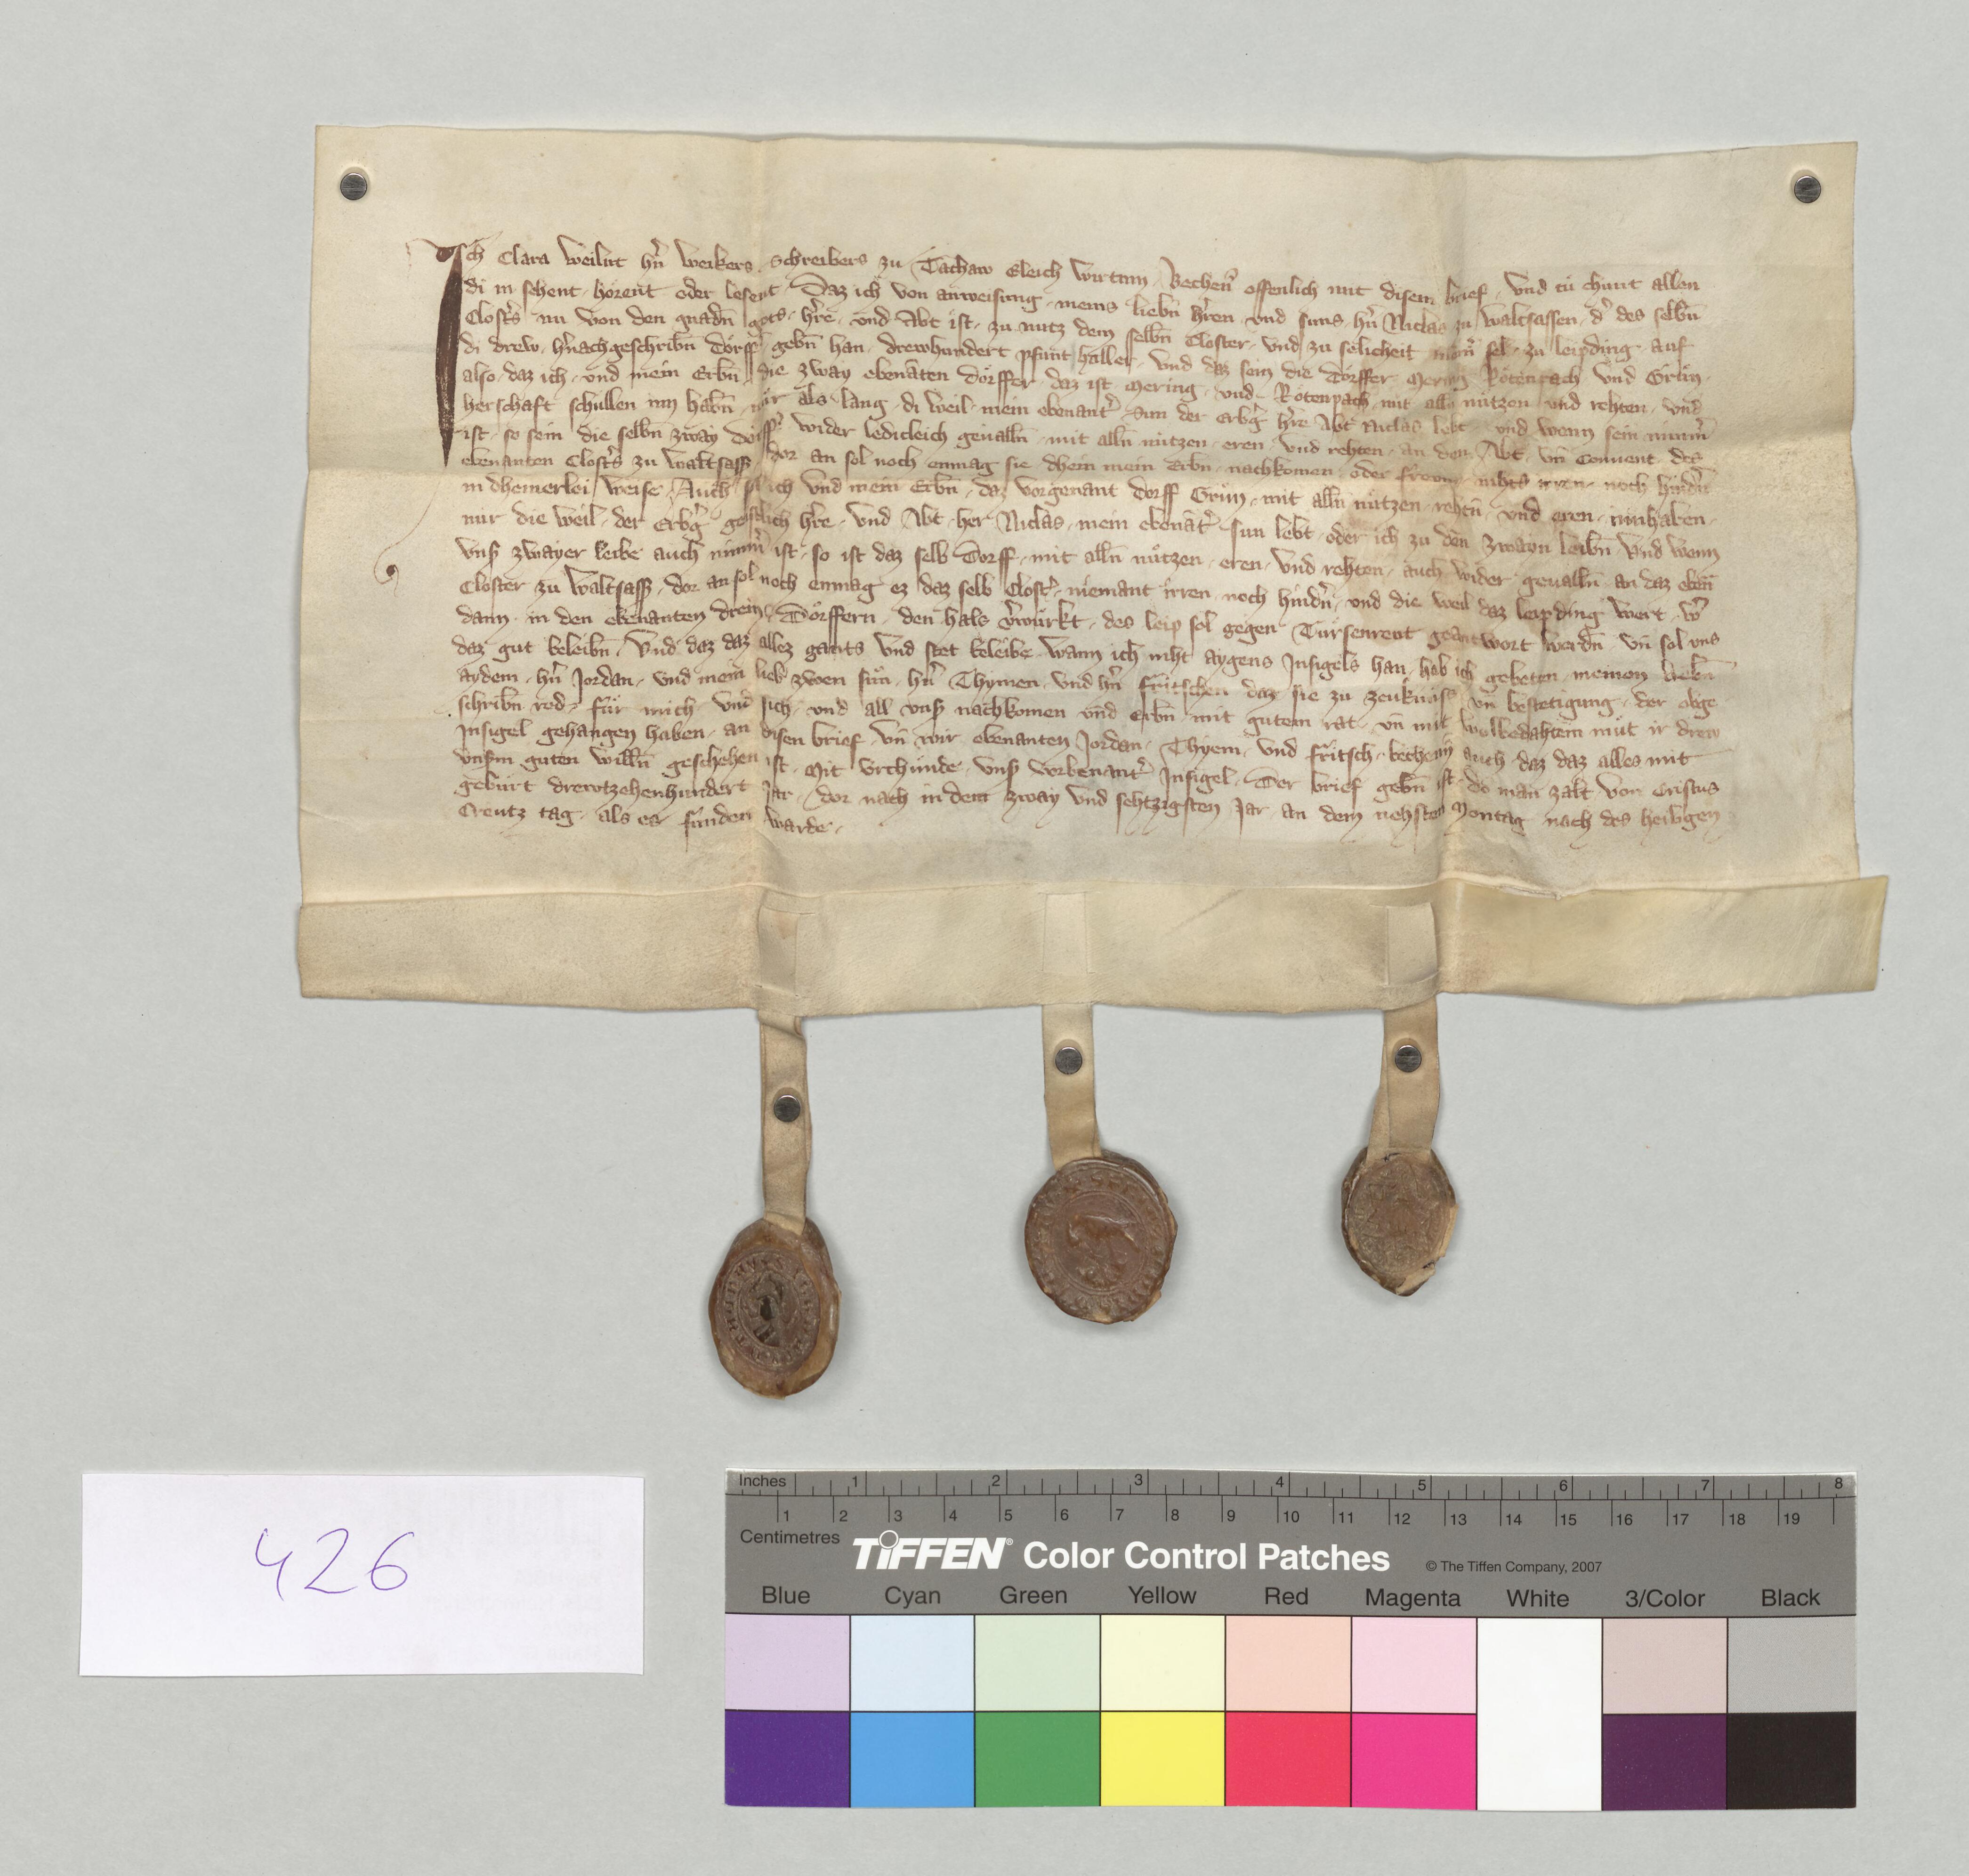 Ich Clara Weilnt hn̄ Weikers Schreibers zu Tachaw Eleich Wirtinn Bechenn̄ offenlich mit disem brief und tů chunt allen
di in sehent hörent oder lesent Daz ich von anweisung meins liebn̄ hr̄ren und suns hn̄ Niclas zu Waltsassen d' des selbn̄
Clost's nu von den gnadn̄ gots h're und Abt ist zu nutz dem selbn̄ Closter und zu selicheit mein' sel zu leipding auf
di drew h'nachgeschribn̄ Dörff' gebn̄ han drewhundert pfunt haller und daz sein die Dörffer Mering Rötenpach und Grün
also daz ich und mein Erbn̄ die zway ebenāten dörffer daz ist Mering und Rötenpach mit alln̄ nützen und rehten und
herschaft schullen inn habn̄ nür als lang di weil mein ebenant' Sun der Erbg' h're Abt Niclas lebt und wenn sein nimm'
ist so sein die selbn̄ zway dörff' wider ledicleich geualln̄ mit alln̄ nützen eren und rehten an den Abt un̄ Conuent des
ebenanten Clost's zu Waltsass dor an sol noch enmag sie dhein mein Erbn̄ nachkomen oder frewnt nihts irren noch hindn̄
in dheinerlei weise Auch sol ich und mein Erbn̄ daz vorgenant dorff Grün mit alln̄ nützen rehtn̄ und eren innhaben
nür die weil der Erbg' geistlich h're und Abt her Niclas mein ebenāt' sun lebt oder ich zu den zwayn leibn̄ Und wenn
uns' zwayer leibe auch nimm' ist so ist daz selb Dorff mit alln̄ nützen eren und rehten auch wider geualln̄ an daz eben̄
Closter zu Waltsass dor an sol noch enmag ez daz selb Clost' niemant irren noch hindn̄ und die weil daz leipding wert w'
dann in den ebenanten drein Dörffern den hals v'würkt des leip sol gegen Türsenrent geantwort werdn̄ un̄ sol uns
daz gut beleibn̄ Und daz daz allez gants und stet beleibe wann ich niht aygens Insigels han hab ich gebeten meinen liebn̄
aydem hn̄ Jordan und mein lieb zwen sün hn̄ Thymen und hn̄ fritschen daz sie zu zeuknüss un̄ bestetigung der obge
schribn̄ red für mich und sich und all uns' nachkomen und Erbn̄ mit gutem rat un̄ mit wolbedahtem müt ir drew
Insigel gehangen haben an disen brief Un̄ wir ebenanten Jordan Thyem und fritsch bechenn̄ auch daz daz alles mit
unserm guten willn̄ geschehen ist Mit Urchünde uns' vorbenant' Insigel Der brief gebn̄ ist do man zalt von Cristus
gebürt drewtzehenhundert Jar dor nach in dem zway und sehtzigsten Jar an dem nehsten Montag nach des heiligen
Creutz tag als es funden warde
426
Inches 1 2 3 4 5 6 7 8
1 2 3 4 5 6 7 8 9 10 11 12 13 14 15 16 17 18 19
Centimetres
TIFFEN® Color Control Patches © The Tiffen Company, 2007
Blue Cyan Green Yellow Red Magenta White 3/Color Black